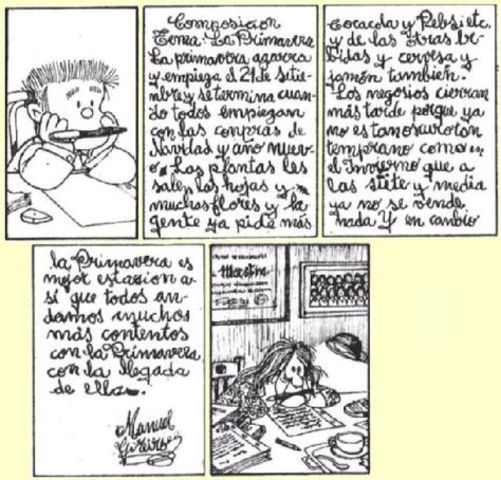 Composicion
Tema: La Primavera
La primavera agarra
y empieza el 21 de setie-
mbre y se termina cuan-
do todos empiezan
con las conpras de
Navidad y año nuev-
o. Las plantas les
salen las hojas y
muchos flores y la
gente ya pide más
Cocacola y Pebsi etc.
y de las otras be-
bidas y cervesa y
jamón también.
Los negosios cierran
más tarde porque ya
no es tan oscuro tan
temprano como en
el Invierno que a
las siete y media
ya no se vende
nada Y en cambio
la Primavera es
mejor estasion a-
sí que todos an-
damos muchos
más contentos
con la Primavera
con la llegada
de ella.
Manuel
Maestra